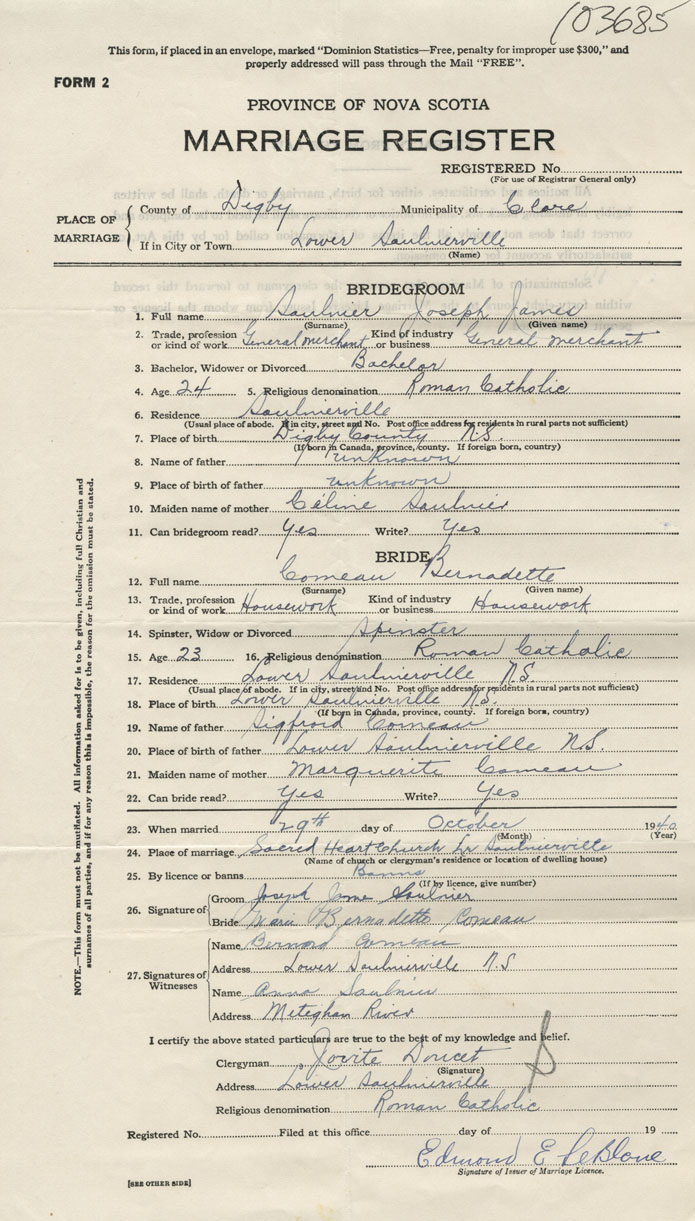 103685
This form, if placed in an envelope, marked "Dominion Statistics—Free, penalty for improper use $300," and
properly addressed will pass through the Mail "FREE".
FORM 2
PROVINCE OF NOVA SCOTIA
MARRIAGE REGISTER
REGISTERED No.
(For use of Registrar General only)
PLACE OF MARRIAGE
County of Digby Municipality of Clare
If in City or Town Lower Saulnierville
(Name)
BRIDEGROOM
1. Full name Saulnier Joseph James
(Surname) (Given name)
2. Trade, profession or kind of work General merchant Kind of industry or business General merchant
3. Bachelor, Widower or Divorced Bachelor
4. Age 24 5. Religious denomination Roman Catholic
6. Residence Saulnierville
(Usual place of abode. If in city, street and No. Post office address for residents in rural parts not sufficient)
7. Place of birth Digby County N.S.
(If born in Canada, province, county. If foreign born, country)
8. Name of father unknown
9. Place of birth of father unknown
10. Maiden name of mother Céline Saulnier
11. Can bridegroom read? Yes Write? Yes
BRIDE
12. Full name Comeau Bernadette
(Surname) (Given name)
13. Trade, profession or kind of work Housework Kind of industry or business Housework
14. Spinster, Widow or Divorced Spinster
15. Age 23 16. Religious denomination Roman Catholic
17. Residence Lower Saulnierville N.S.
(Usual place of abode. If in city, street and No. Post office address for residents in rural parts not sufficient)
18. Place of birth Lower Saulnierville N.S.
(If born in Canada, province, county. If foreign born, country)
19. Name of father Sigfroid Comeau
20. Place of birth of father Lower Saulnierville N.S.
21. Maiden name of mother Marguerite Comeau
22. Can bride read? Yes Write? Yes
23. When married 29th day of October 1940
(Month) (Year)
24. Place of marriage Sacred Heart Church Lr Saulnierville
(Name of church or clergyman's residence or location of dwelling house)
25. By licence or banns Banns
(If by licence, give number)
26. Signature of
Groom Joseph Saulnier
Bride Marie Bernadette Comeau
27. Signatures of Witnesses
Name Bernard Comeau
Address Lower Saulnierville N.S
Name Anna Saulnier
Address Meteghan River
I certify the above stated particulars are true to the best of my knowledge and belief.
Clergyman Jovite Doucet
(Signature)
Address Lower Saulnierville
Religious denomination Roman Catholic
Registered No. Filed at this office day of 19
Edmond E LeBlanc
Signature of Issuer of Marriage Licence.
[SEE OTHER SIDE]
NOTE.—This form must not be mutilated. All information asked for is to be given, including full Christian and
surnames of all parties, and if for any reason this is impossible, the reason for the omission must be stated.